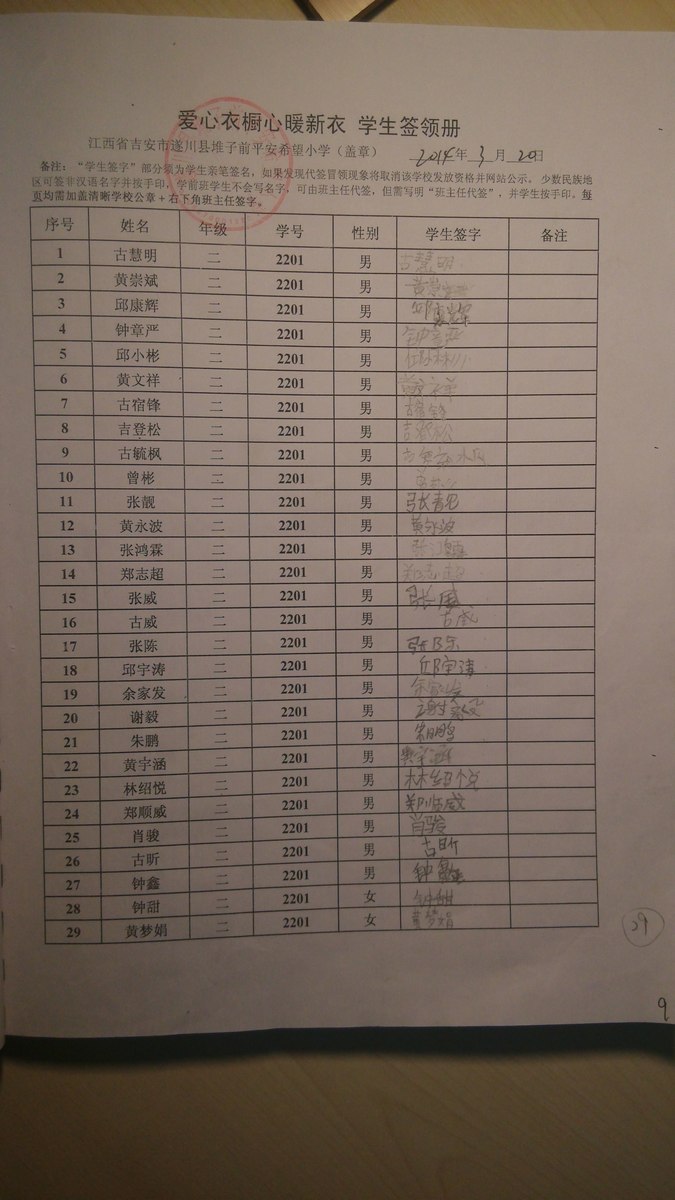 爱心衣橱心暖新衣 学生签领册
江西省吉安市遂川县堆子前平安希望小学（盖章） 2014年 3 月 20日
备注：“学生签字”部分须为学生亲笔签名，如果发现代签冒领现象将取消该学校发放资格并网站公示。少数民族地
区可签非汉语名字并按手印，学前班学生不会写名字，可由班主任代签，但需写明“班主任代签”，并学生按手印。每
页均需加盖清晰学校公章+右下角班主任签字。
序号 姓名 年级 学号 性别 学生签字 备注
1 古慧明 二 2201 男 古慧明
2 黄崇斌 二 2201 男 黄崇斌
3 邱康辉 二 2201 男 邱康辉
4 钟章严 二 2201 男 钟章严
5 邱小彬 二 2201 男
6 黄文祥 二 2201 男 黄文祥
7 古宿锋 二 2201 男 古宿锋
8 吉登松 二 2201 男 吉登松
9 古毓枫 二 2201 男
10 曾彬 二 2201 男
11 张靓 二 2201 男 张靓
12 黄永波 二 2201 男 黄永波
13 张鸿霖 二 2201 男 张鸿霖
14 郑志超 二 2201 男 郑志超
15 张威 二 2201 男 张威
16 古威 二 2201 男 古威
17 张陈 二 2201 男 张陈
18 邱宇涛 二 2201 男 邱宇涛
19 余家发 二 2201 男 余家发
20 谢毅 二 2201 男 谢毅
21 朱鹏 二 2201 男 朱鹏
22 黄宇涵 二 2201 男 黄宇涵
23 林绍悦 二 2201 男 林绍悦
24 郑顺威 二 2201 男 郑顺威
25 肖骏 二 2201 男 肖骏
26 古昕 二 2201 男 古昕
27 钟鑫 二 2201 男 钟鑫
28 钟甜 二 2201 女 钟甜
29 黄梦娟 二 2201 女 黄梦娟
29
9